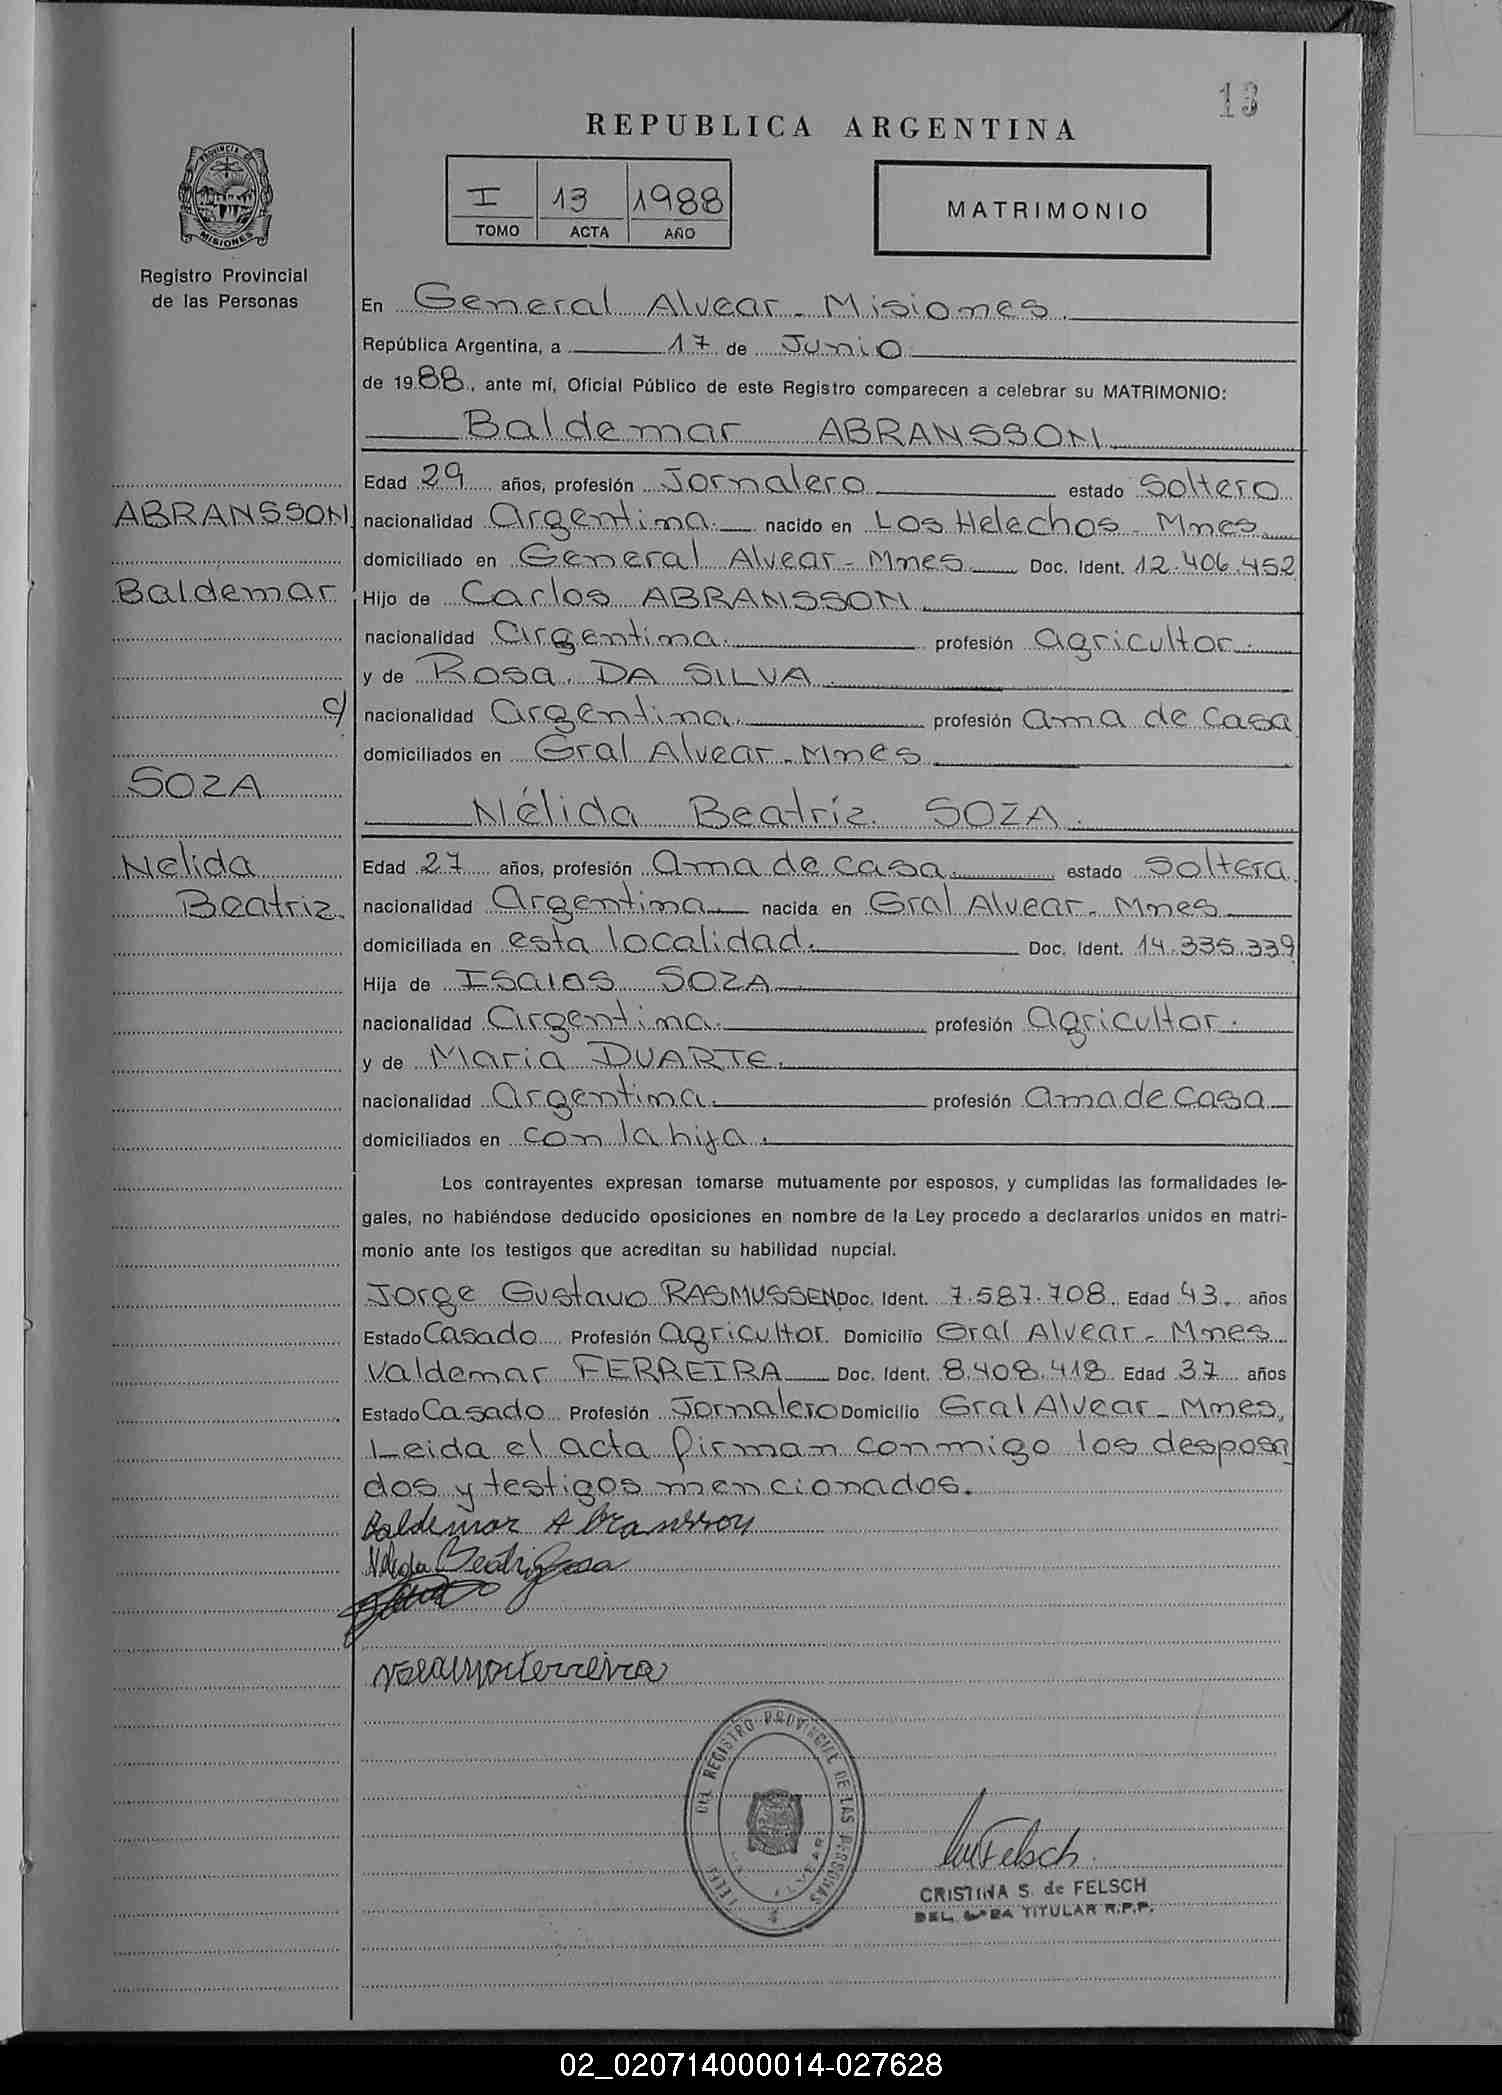 13
REPUBLICA ARGENTINA
PROVINCIA DE
MISIONES
Registro Provincial
de las Personas
I 13 1988
TOMO ACTA AÑO
MATRIMONIO
En General Alvear - Misiones.
República Argentina, a 17 de Junio
de 1988, ante mí, Oficial Público de este Registro comparecen a celebrar su MATRIMONIO:
Baldemar ABRANSSON
Edad 29 años, profesión Jornalero estado Soltero
ABRANSSON
nacionalidad Argentina. nacido en Los Helechos - Mnes
domiciliado en General Alvear - Mnes Doc. Ident. 12.406.452
Baldemar
Hijo de Carlos ABRANSSON
nacionalidad Argentina. profesión agricultor.
y de Rosa DA SILVA
c/
nacionalidad Argentina. profesión ama de casa
domiciliados en Gral Alvear - Mnes
SOZA
Nélida Beatríz SOZA.
Nelida
Edad 27 años, profesión Ama de casa. estado Soltera.
Beatriz.
nacionalidad Argentina. nacida en Gral Alvear - Mnes
domiciliada en esta localidad. Doc. Ident. 14.335.339
Hija de Isaias SOZA
nacionalidad Argentina. profesión Agricultor.
y de Maria DUARTE.
nacionalidad Argentina. profesión ama de casa
domiciliados en con la hija.
Los contrayentes expresan tomarse mutuamente por esposos, y cumplidas las formalidades le-
gales, no habiéndose deducido oposiciones en nombre de la Ley procedo a declararlos unidos en matri-
monio ante los testigos que acreditan su habilidad nupcial.
Jorge Gustavo RASMUSSEN Doc. Ident. 7.587.708. Edad 43. años
Estado Casado Profesión Agricultor. Domicilio Gral Alvear - Mnes
Valdemar FERREIRA Doc. Ident. 8.408.418 Edad 37 años
Estado Casado Profesión Jornalero Domicilio Gral Alvear - Mnes,
Leida el acta firman conmigo los desposa
dos y testigos mencionados.
Baldemar Abransson
Nelida Beatriz Sosa
DEL REGISTRO PROVINCIAL DE LAS PERSONAS
Felsch
CRISTINA S. de FELSCH
TITULAR R.P.P.
02_020714000014-027628